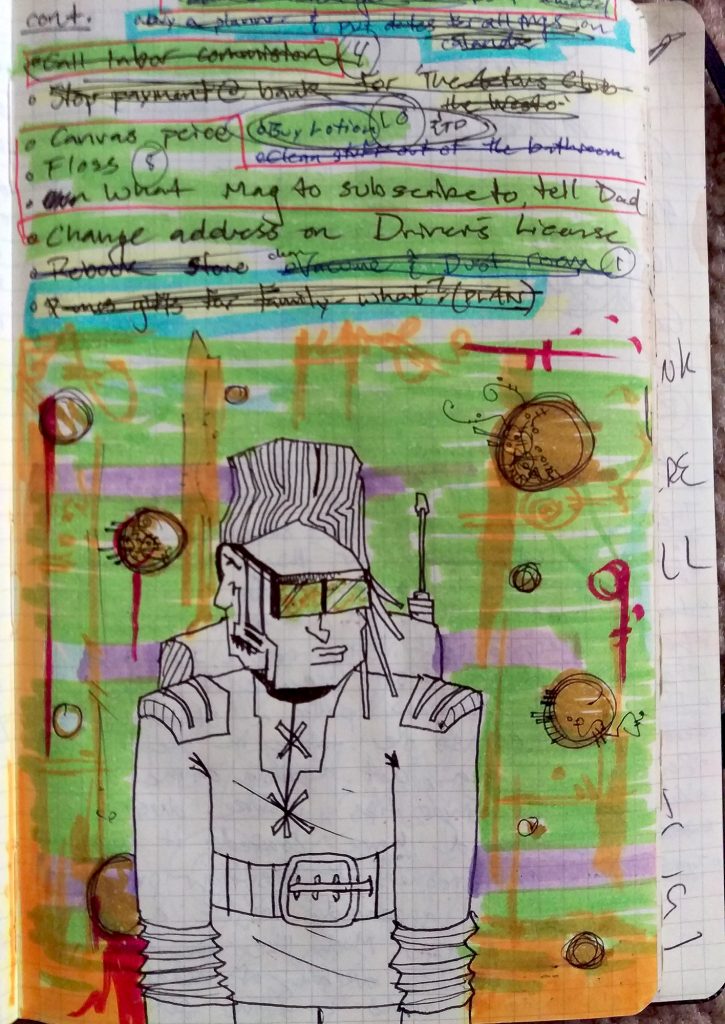 cont.
buy a planner & put dates for all mgs on
calendar
• Call labor commission 4
• Stop payment @ bank for The Actors Club
the West
• Canvas peice • Buy Lotion 10 ETD
• Floss 8 • Clean stuff out of the bathroom
• What Mag to subscribe to, tell Dad
• Change address on Driver's License
• Rebook Store clean Vacume & Dust room 1
• X-mas gifts for family - what? (PLAN)